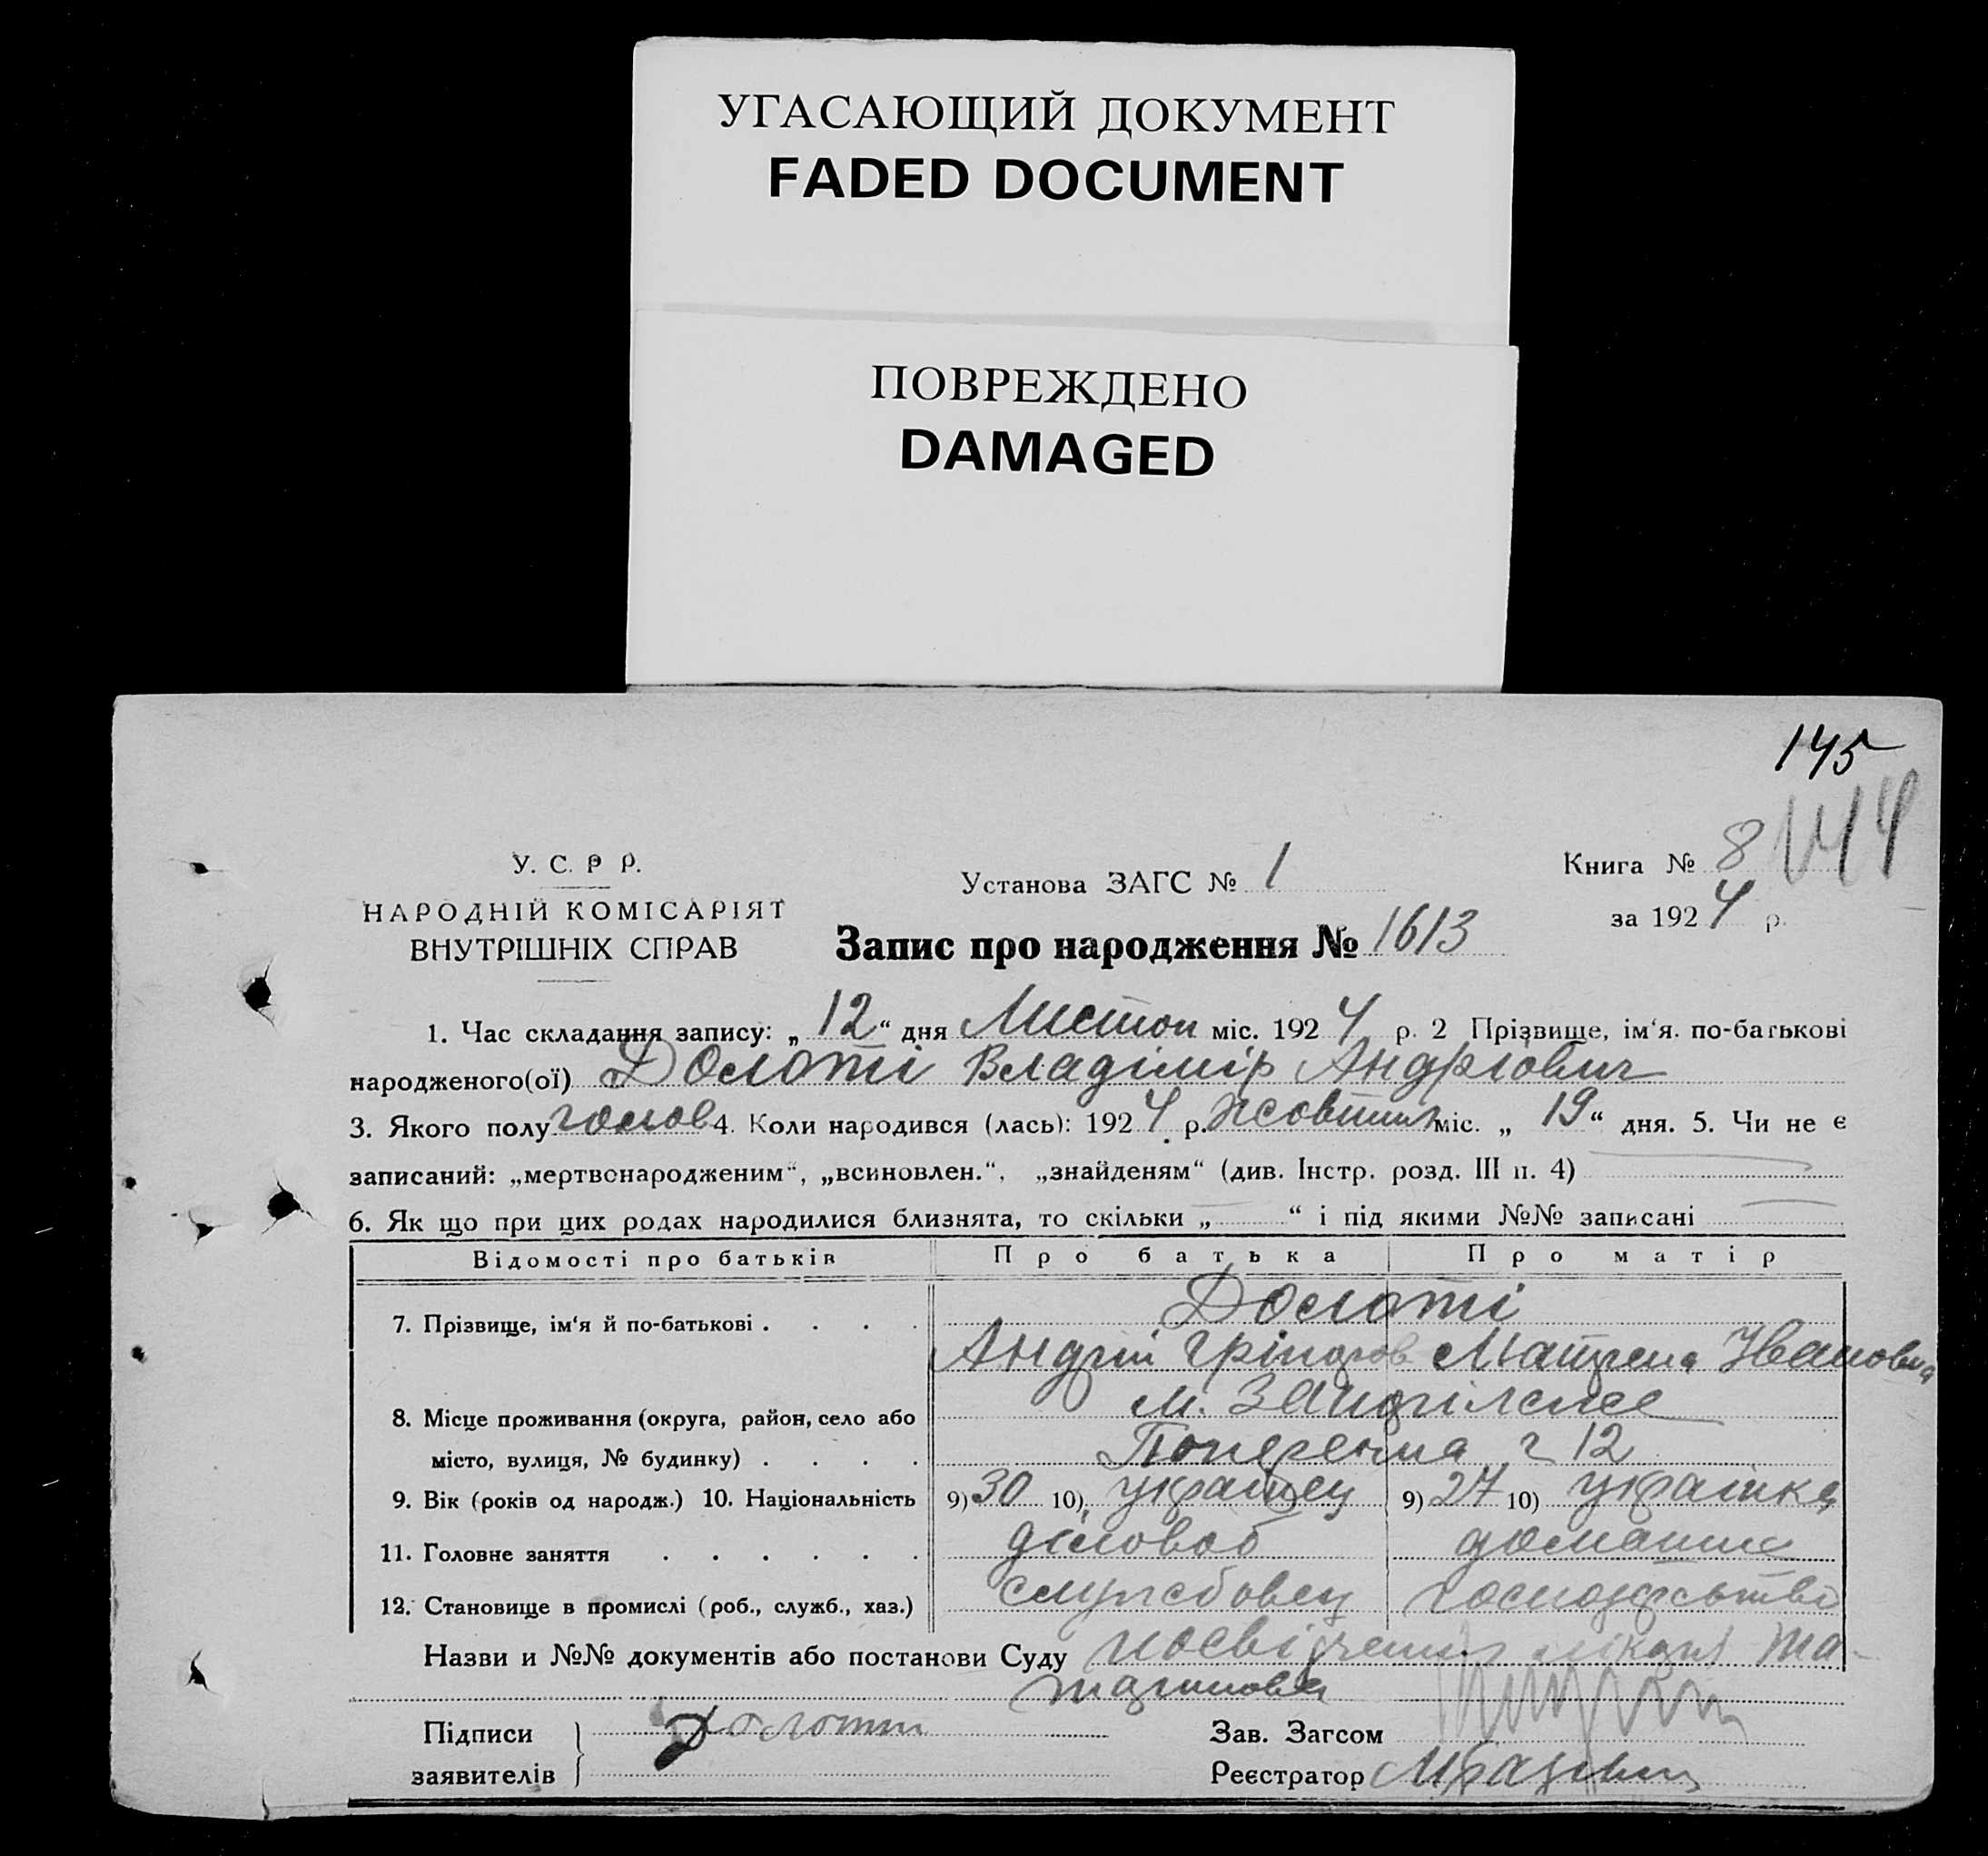 УГАСАЮЩИЙ ДОКУМЕНТ
FADED DOCUMENT
ПОВРЕЖДЕНО
DAMAGED
145
144
У. С. Р Р.
НАРОДНІЙ КОМІСАРІЯТ
ВНУТРІШНІХ СПРАВ
Установа ЗАГС № 1
Книга № 8
за 1924 р.
Запис про народження № 1613
1. Час складання запису: „ 12 “ дня Листоп міс. 1924 р. 2 Прізвище, ім‘я. по-батькові
народженого(ої) Долоті Владімір Андрієвич
3. Якого полу чолов 4. Коли народився (лась): 1924 р. жовтня міс. „ 19 “ дня. 5. Чи не є
записаний: „мертвонародженим“, „всиновлен.“, „знайденям“ (див. Інстр. розд. III п. 4)
6. Як що при цих родах народилися близнята, то скільки „ “ і під якими №№ записані
Відомості про батьків Про батька Про матір
7. Прізвище, ім‘я й по-батькові . . . . Долоті
Андрій Грігоров Матрена Ивановна
8. Місце проживання (округа, район, село або м.
місто, вулиця, № будинку) . . . . Поперечна 12
9. Вік (років од народж.) 10. Національність 9) 30 10) украінец 9) 27 10) украінка
11. Головне заняття . . . . . . діловод домашне
12. Становище в промислі (роб., служб., хаз.) службовец господарство
Назви и №№ документів або постанови Суду посвідчення лікаря та
Підписи
заявителів
Долоти
Зав. Загсом
Реєстратор